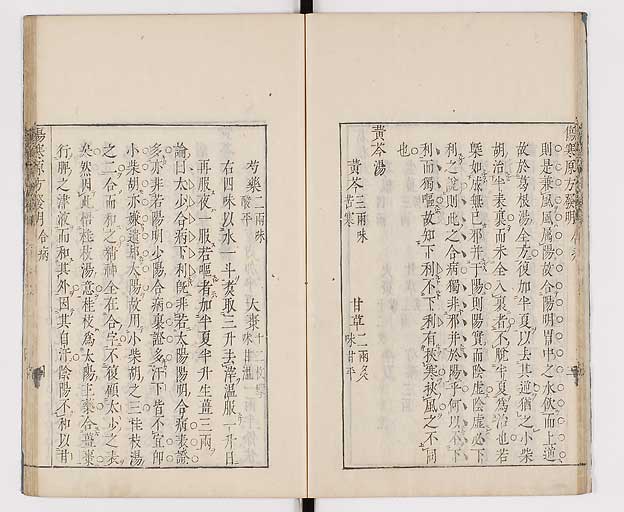 則是兼風風屬陽故合陽明胃中之水飲而上逆
故於葛根湯全方復加半夏以去其逆猶之小柴
胡治半表裏而未全入裏者不脫半夏爲治也若
槩如成無已邪并于陽則陽實而陰虛陰虛必下
利之說則此之合病獨非邪并於陽乎何以不下
利而獨嘔故知下利不下利有挾寒挾風之不同
也
黃芩湯
黃芩三兩味苦寒 甘草二兩炙味甘平
芍藥二兩味酸平 大棗十二枚擘味甘溫
右四味以水一斗煑取三升去滓溫服一升日
再服夜一服若嘔者加半夏半升生薑三兩
論曰太少合病下利旣非若太陽陽明合病表證
多亦非若陽明少陽合病裏證多汗下皆不宜卽
小柴胡亦嫌遺却太陽故用小柴胡之三桂枝湯
之二合而和之精神全在合字不復顧太少之表
矣然因此悟桂枝湯意桂枝爲太陽主藥合薑棗
行脾之津液而和其外因其自汗陰陽不和以甘
傷寒原方發明 合病